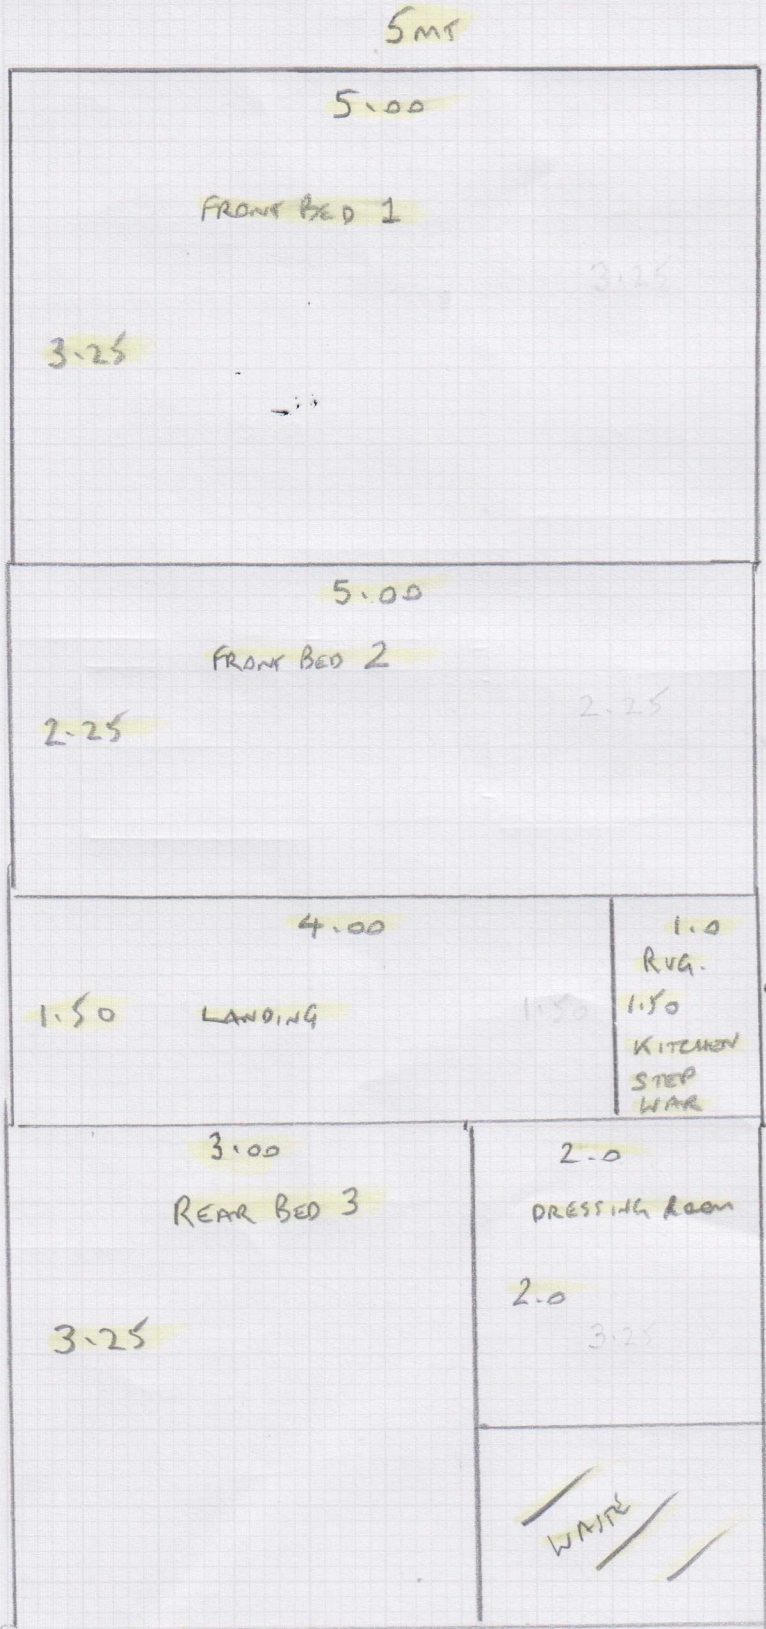 5 MT
5.00
FRONT BED 1
3.25
3.25
5.00
FRONT BED 2
2.25
2.25
4.00
1.50 LANDING 1.50
1.0
RUG.
1.50
KITCHEN
STEP
WAR
3.00
REAR BED 3
3.25
2.0
DRESSING ROOM
2.0
3.25
WASTE